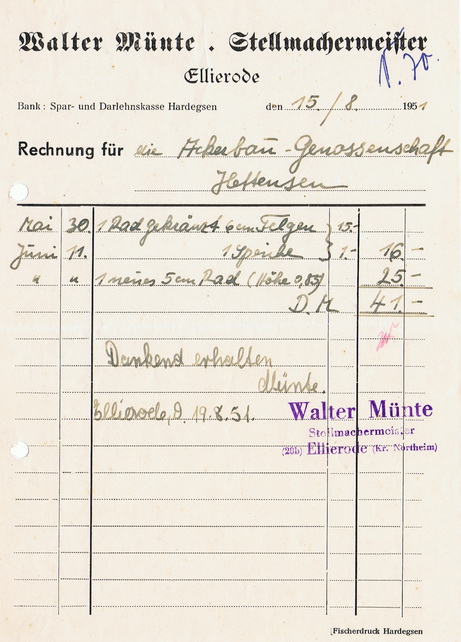 Walter Münte . Stellmachermeister
N. 70.
Ellierode
Bank: Spar- und Darlehnskasse Hardegsen den 15./8. 1951
Rechnung für die Ackerbau-Genossenschaft
Hettensen
Mai 30. 1 Rad gekränzt 6 cm Felgen 15.-
Juni 11. 1 Speiche 1.- 16.-
" " 1 neues 5 cm Rad (Höhe 0,85) 25.-
D.M 41.-
Dankend erhalten
Münte.
Ellierode, d. 19.8.51.
Walter Münte
Stellmachermeister
(20b) Ellierode (Kr. Northeim)
Fischerdruck Hardegsen